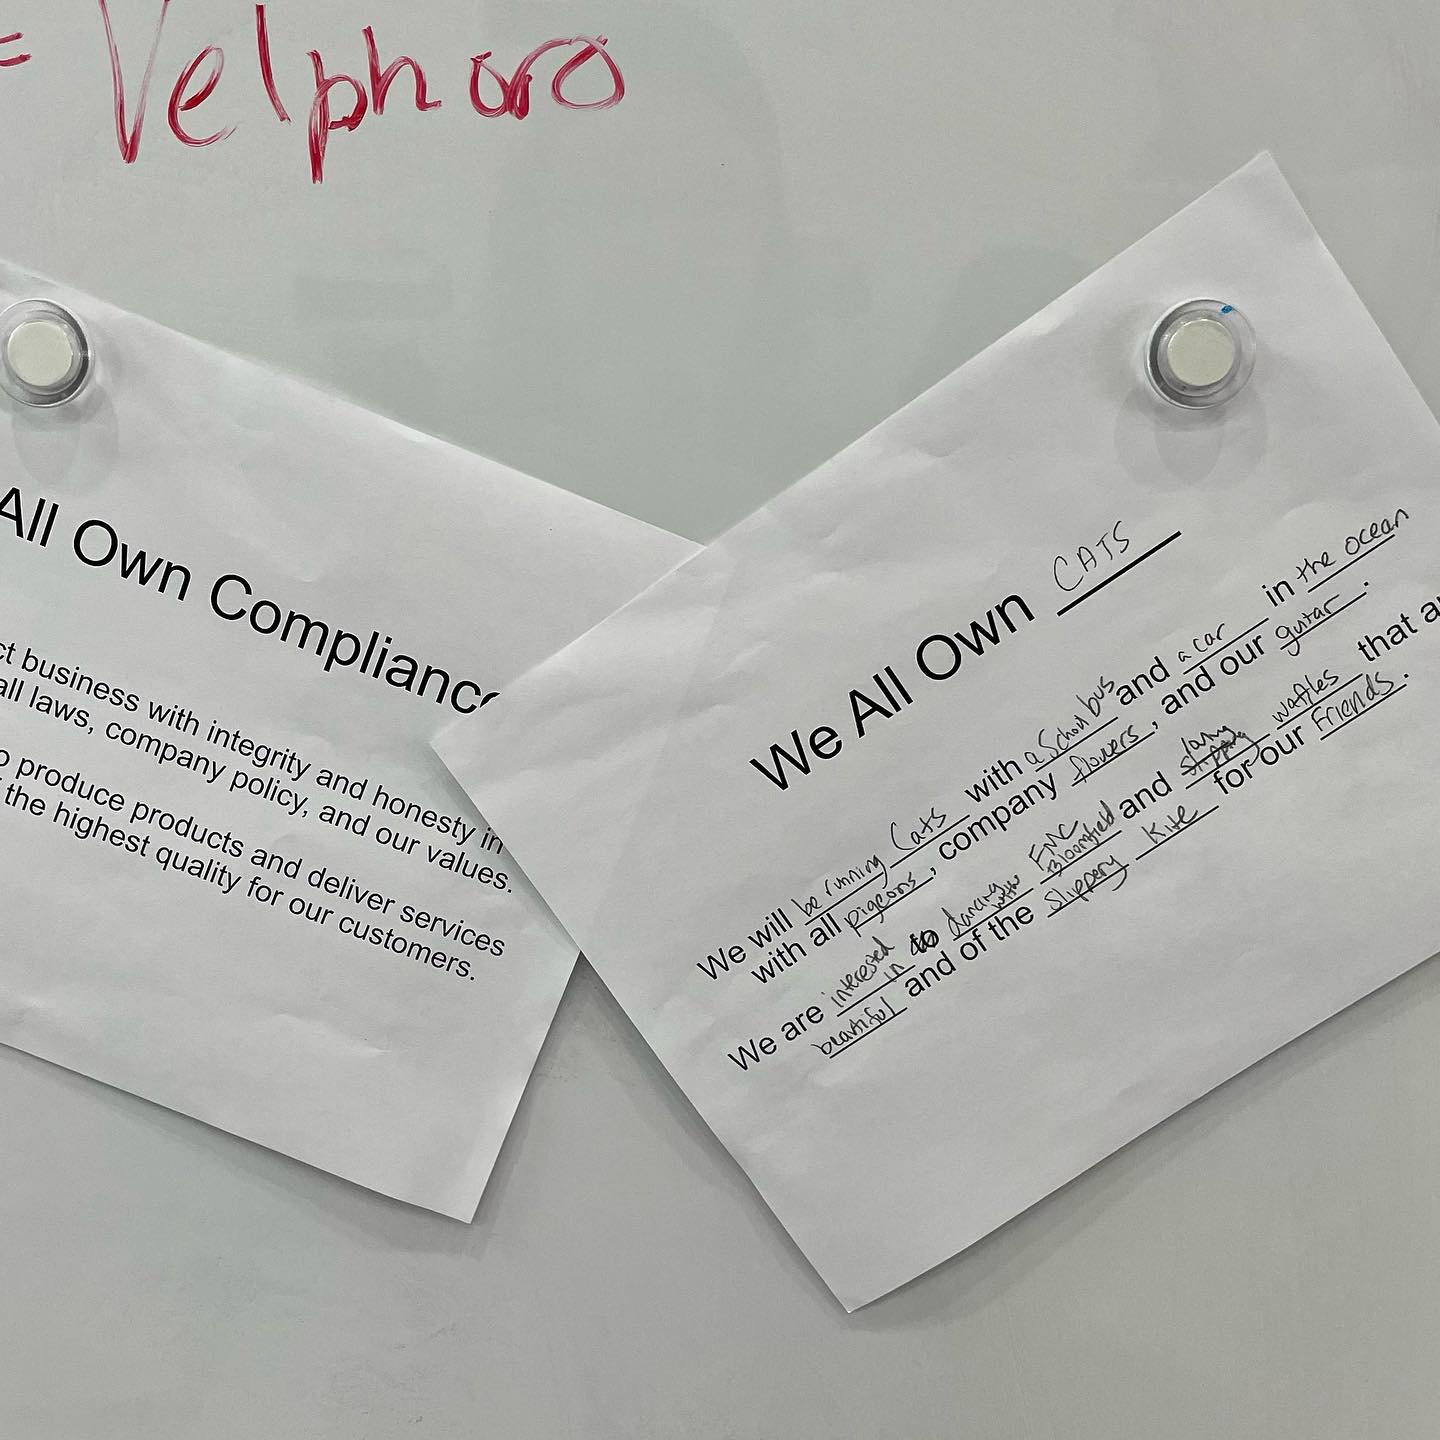 = Velphoro
All Own Complianc
ct business with integrity and honesty in
all laws, company policy, and our values.
o produce products and deliver services
the highest quality for our customers.
We All Own CATS
We will be running Cats with a School bus and a car in the ocean
with all pigeons, company flowers, and our guitar.
We are interested in dancing with the FNC Bloomfield and loving waffles that a
beautiful and of the slippery kite for our Friends.